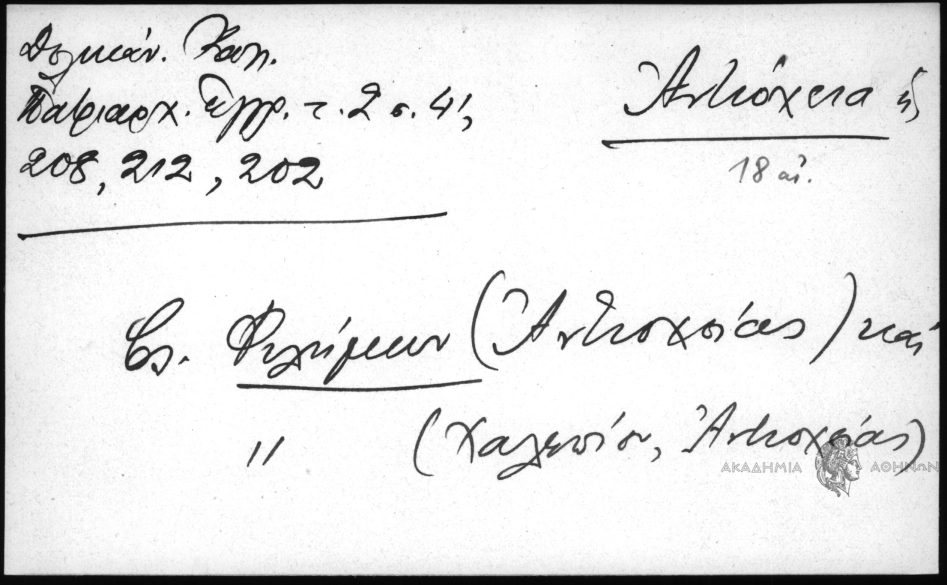 Δελικάν. Καλλ.
Πατριαρχ. Ἔγγρ. τ. 2 σ. 41,
208, 212, 202
Ἀντιόχεια ἡ
18 αἰ.
βλ. Φιλήμων (Ἀντιοχείας) καὶ
" (Χαλεπίου, Ἀντιοχείας)
ΑΚΑΔΗΜΙΑ ΑΘΗΝΩΝ